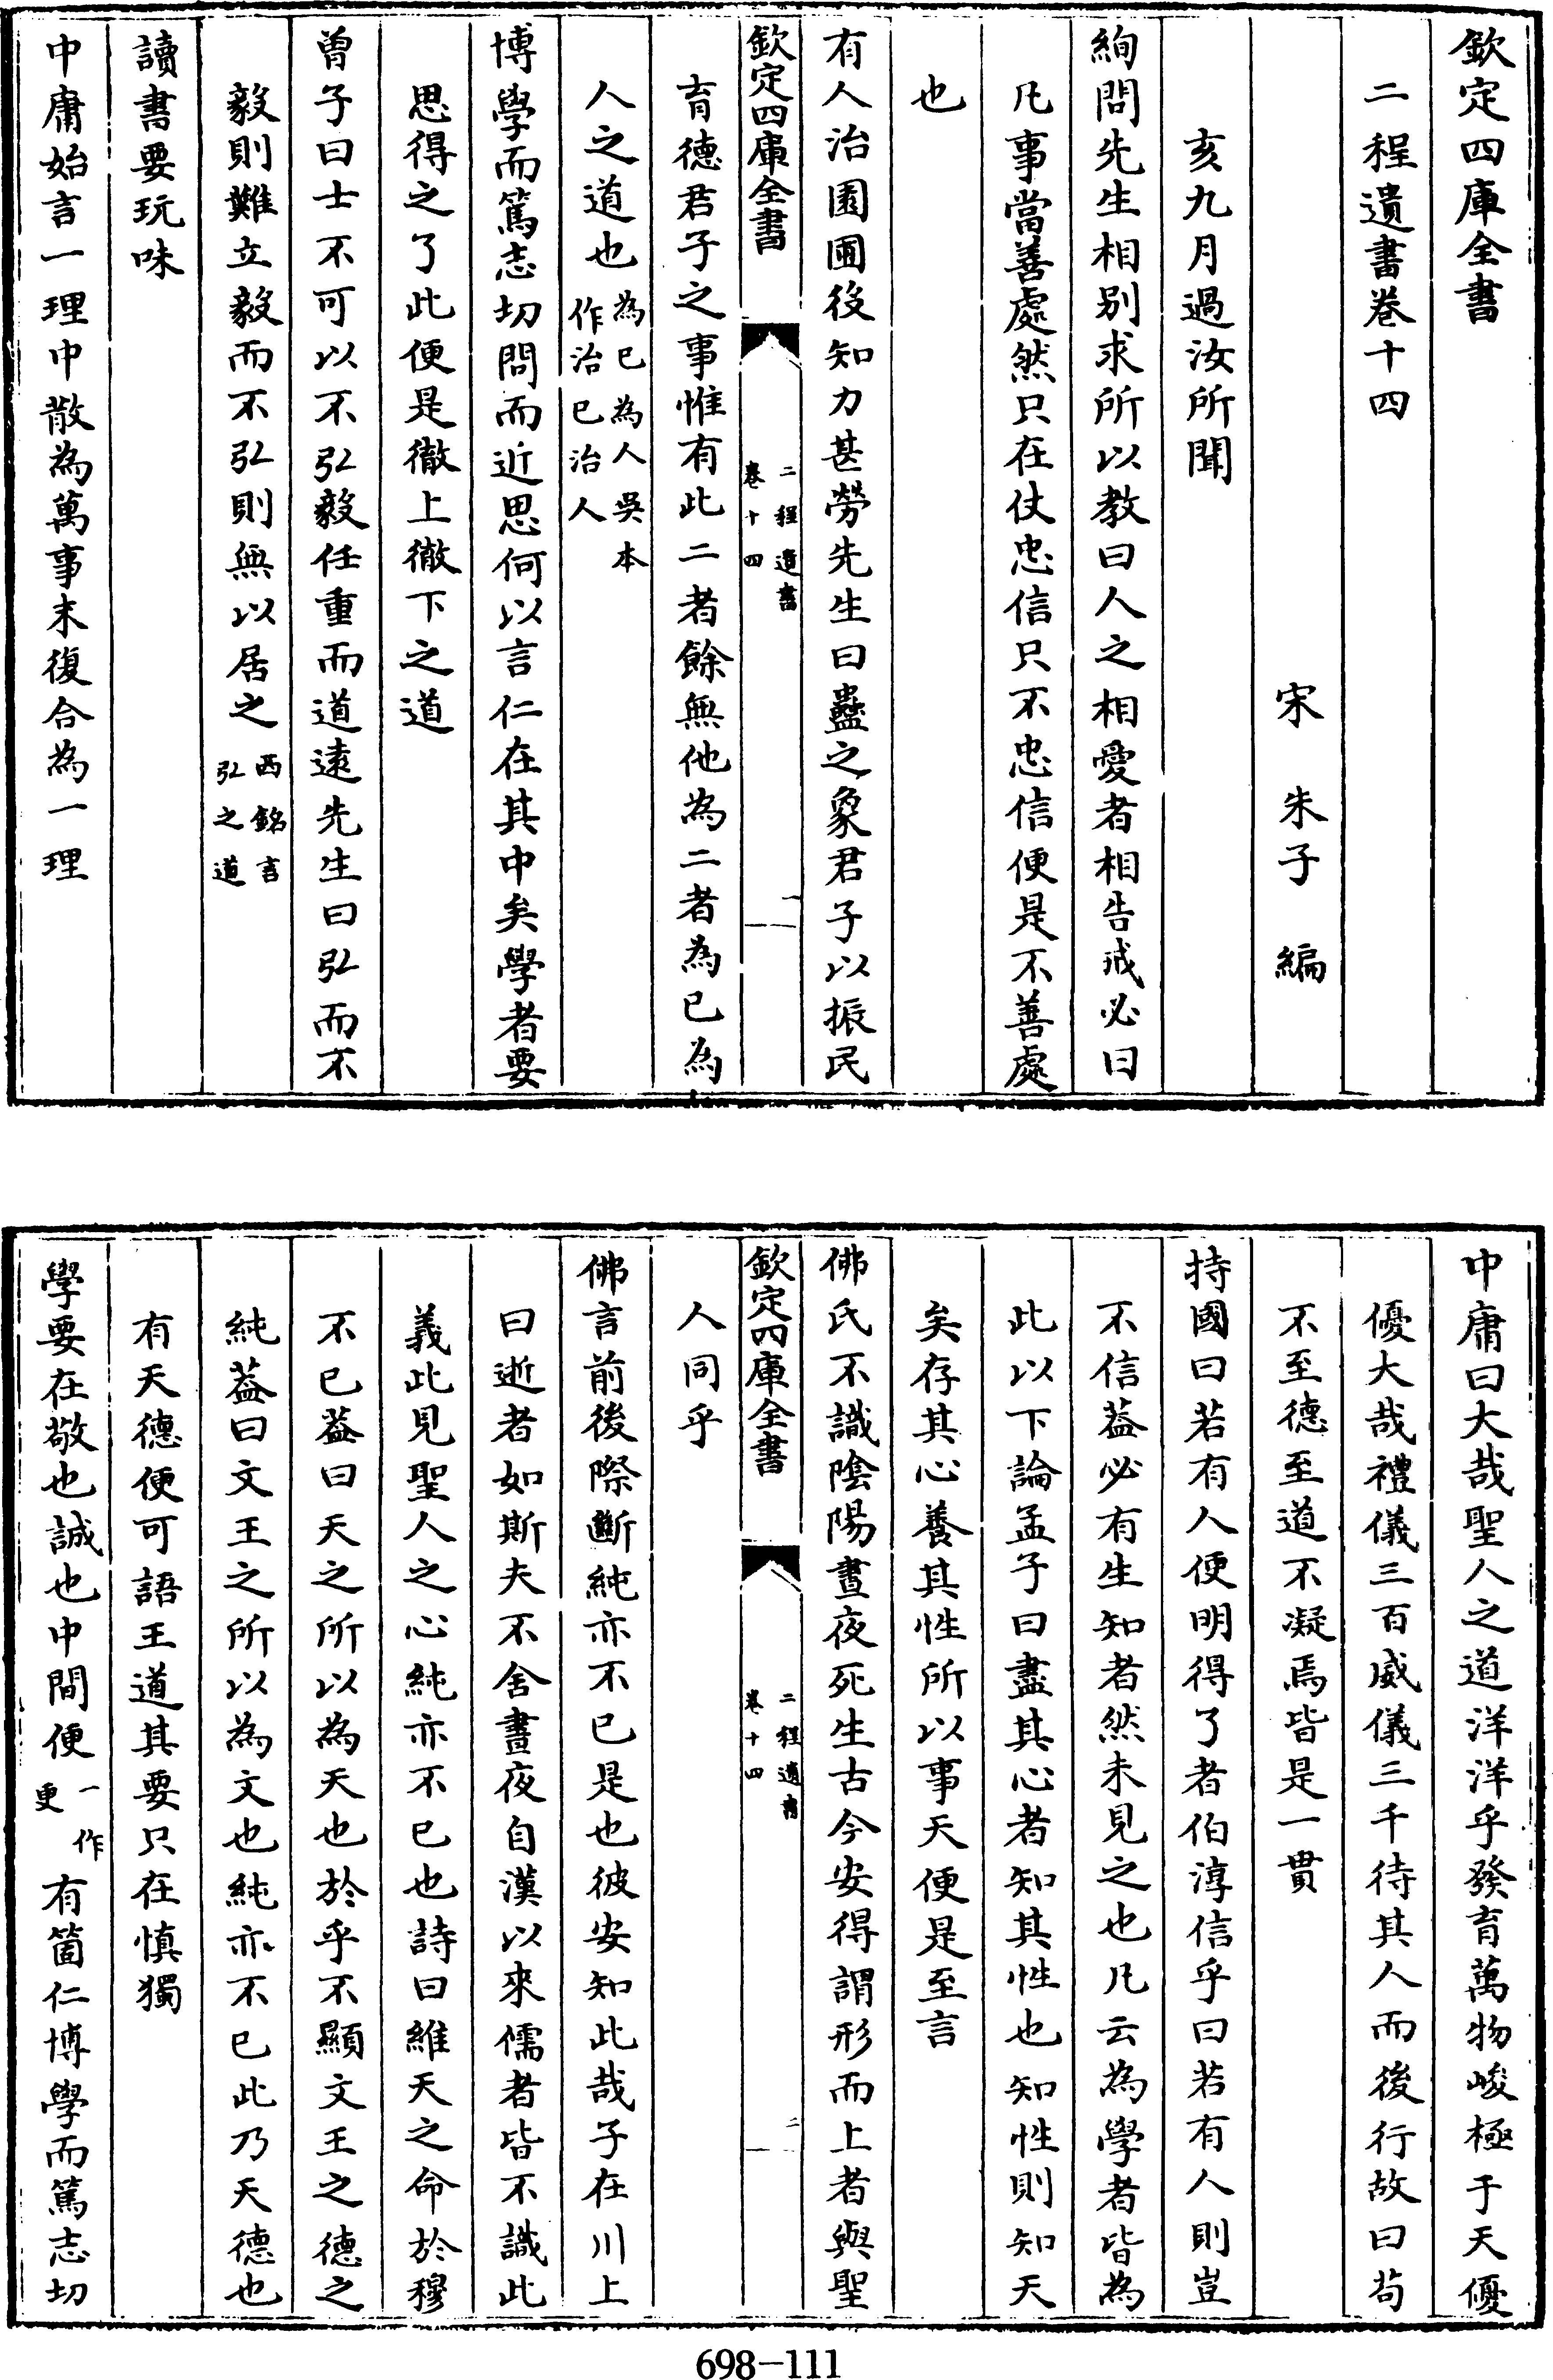 欽定四庫全書
二程遺書卷十四
宋 朱子 編
亥九月過汝所聞
絢問先生相別求所以教曰人之相愛者相告戒必曰
凡事當善處然只在仗忠信只不忠信便是不善處
也
有人治園圃後知力甚勞先生曰蠱之象君子以振民
欽定四庫全書
二程遺書
卷十四
一
育德君子之事惟有此二者餘無他為二者為已為
人之道也為已為人吳本
作治已治人
博學而篤志切問而近思何以言仁在其中矣學者要
思得之了此便是徹上徹下之道
曾子曰士不可以不弘毅任重而道遠先生曰弘而不
毅則難立毅而不弘則無以居之西銘言
弘之道
讀書要玩味
中庸始言一理中散為萬事末復合為一理
中庸曰大哉聖人之道洋洋乎發育萬物峻極于天優
優大哉禮儀三百威儀三千待其人而後行故曰苟
不至德至道不凝焉皆是一貫
持國曰若有人便明得了者伯淳信乎曰若有人則豈
不信葢必有生知者然未見之也凡云為學者皆為
此以下論孟子曰盡其心者知其性也知性則知天
矣存其心養其性所以事天便是至言
佛氏不識陰陽晝夜死生古今安得謂形而上者與聖
欽定四庫全書
二程遺書
卷十四
二
人同乎
佛言前後際斷純亦不已是也彼安知此哉子在川上
曰逝者如斯夫不舍晝夜自漢以來儒者皆不識此
義此見聖人之心純亦不已也詩曰維天之命於穆
不已葢曰天之所以為天也於乎不顯文王之德之
純葢曰文王之所以為文也純亦不已此乃天德也
有天德便可語王道其要只在慎獨
學要在敬也誠也中間便一作
更有箇仁博學而篤志切
698-111